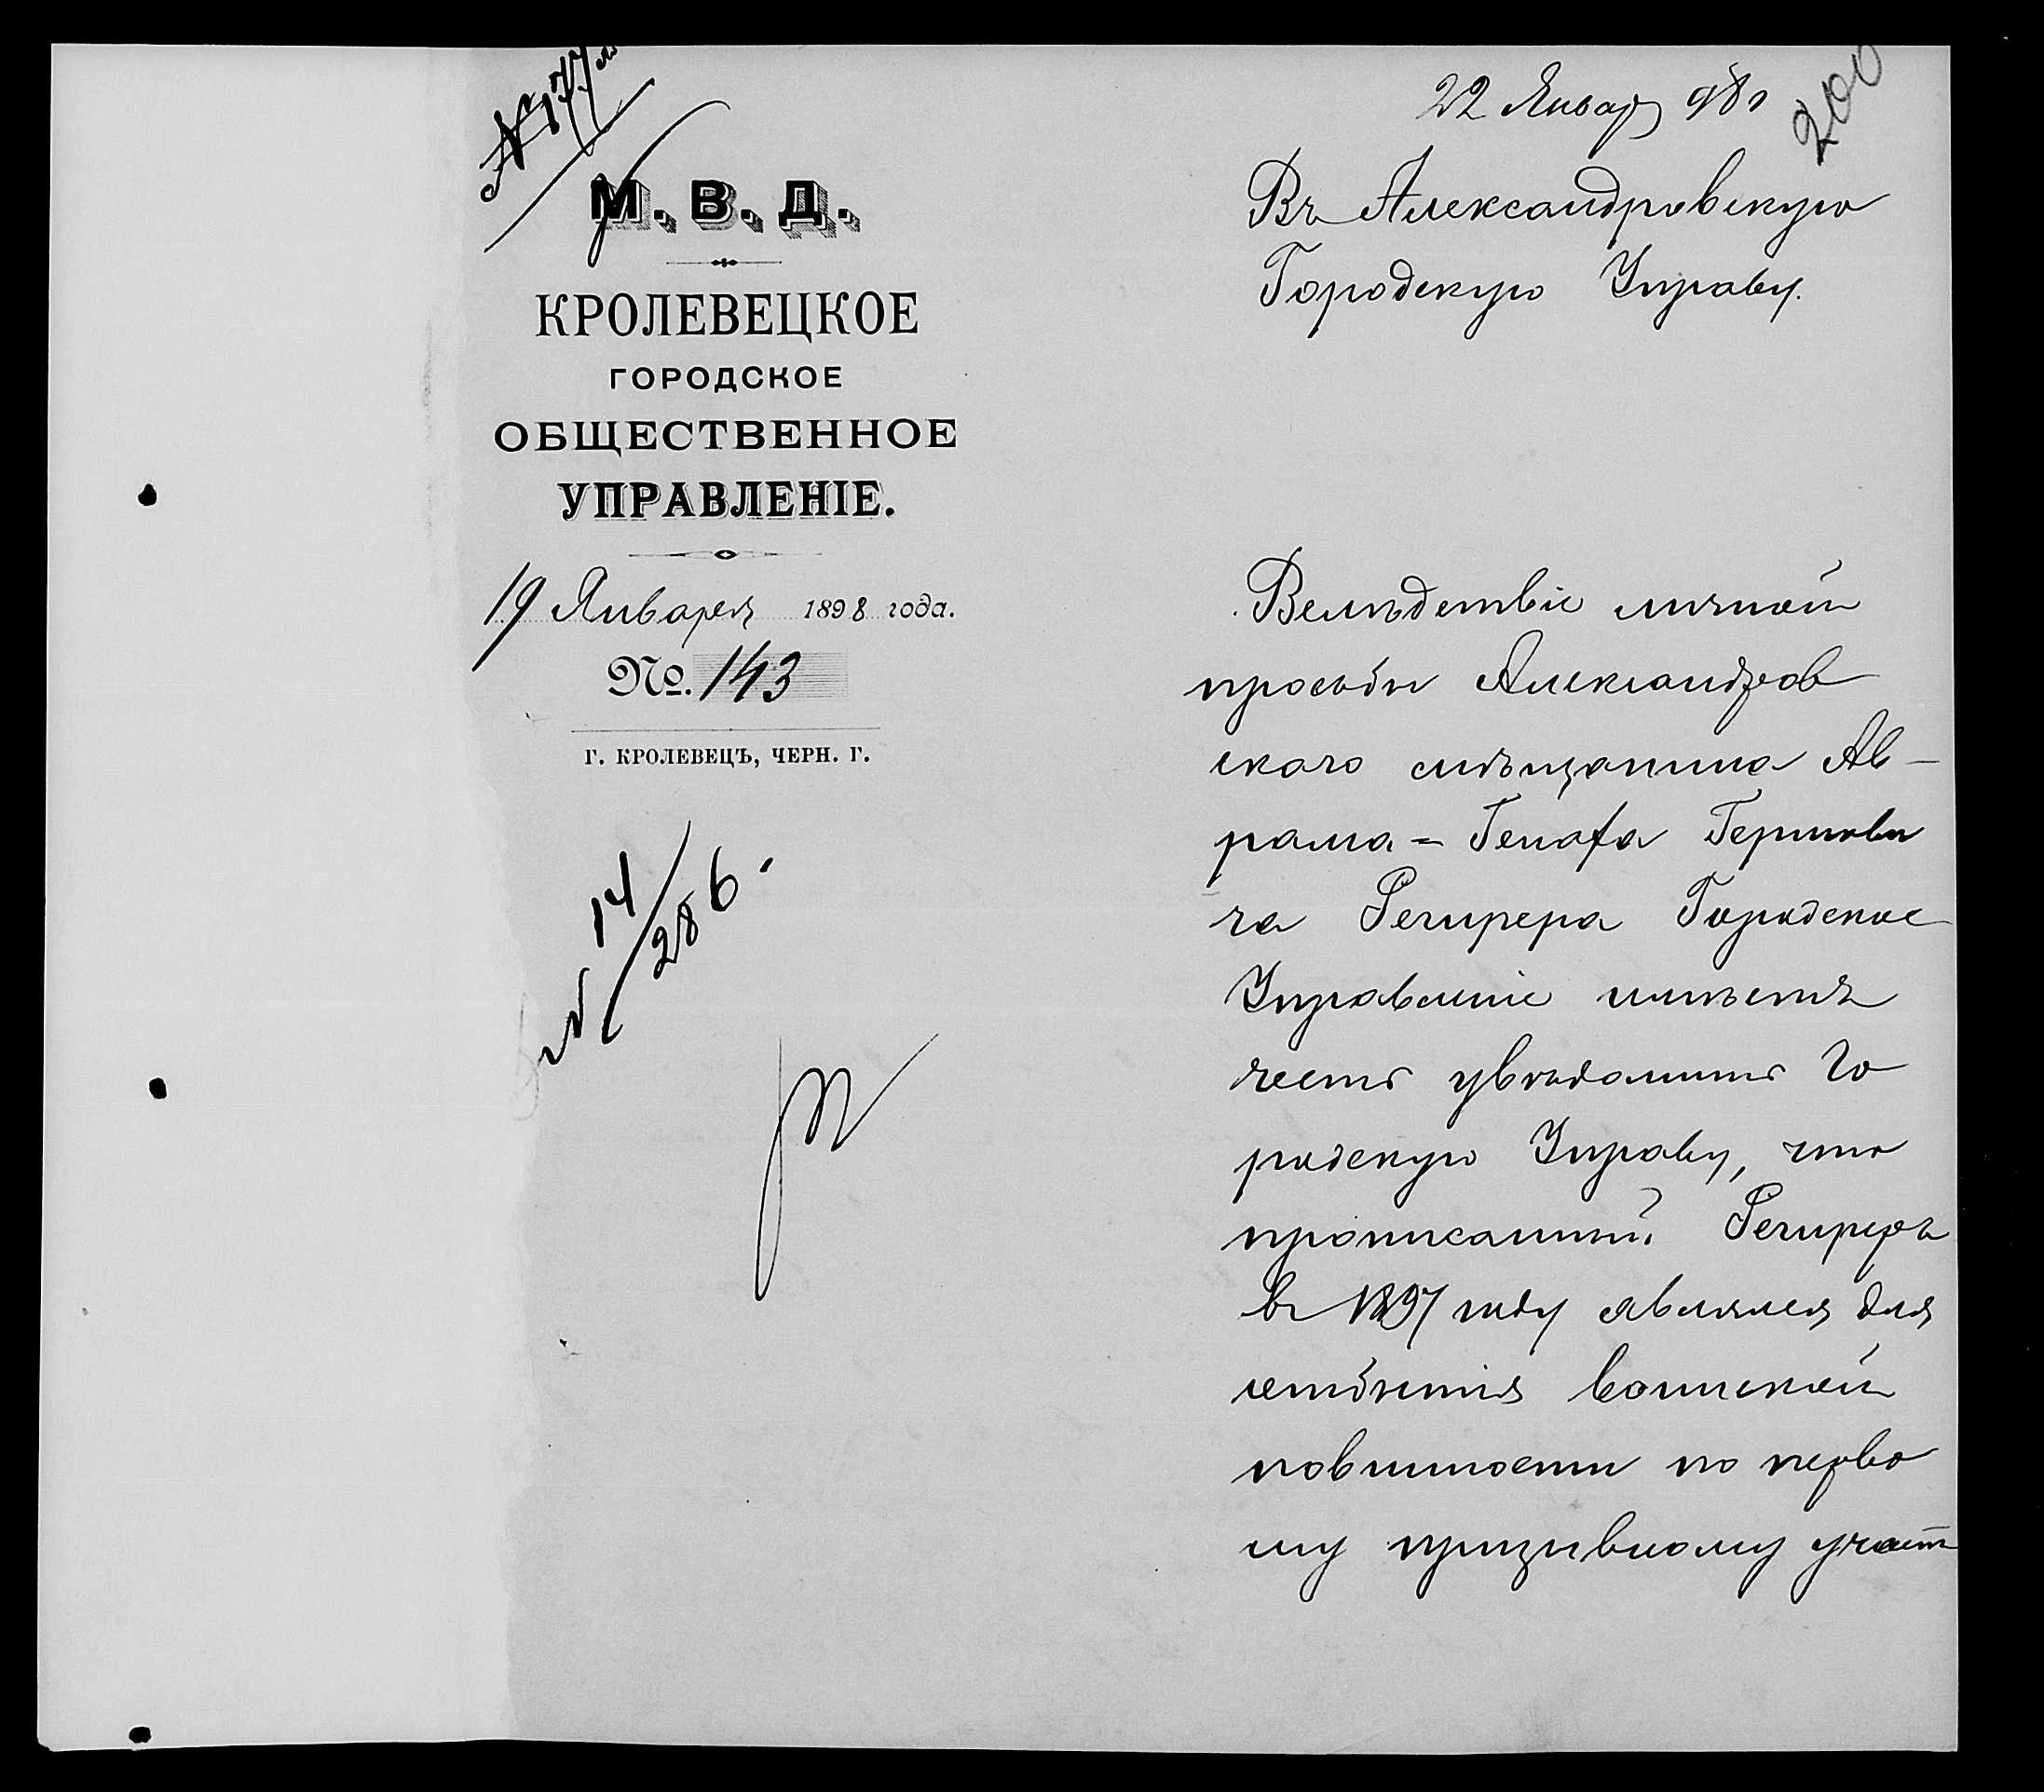 № 177
М. В. Д.
КРОЛЕВЕЦКОЕ
ГОРОДСКОЕ
ОБЩЕСТВЕННОЕ
УПРАВЛЕНІЕ.
19 Января 1898 года.
№. 143
Г. КРОЛЕВЕЦЪ, ЧЕРН. Г.
№ 14/286.
22 Январ 98 г
200
Въ Александровскую
Городскую Управу.
Вслѣдствіе личной
просьбы Александров
скаго мѣщанина Ав-
рама = Генаха Гершкови
ча Речирера Городское
Управленіе имѣетъ
честь увѣдомить Го
родскую Управу, что
прописанный Речиреръ
въ 1897 году являлся для
отбытія воинской
повинности по перво
му призывному участ